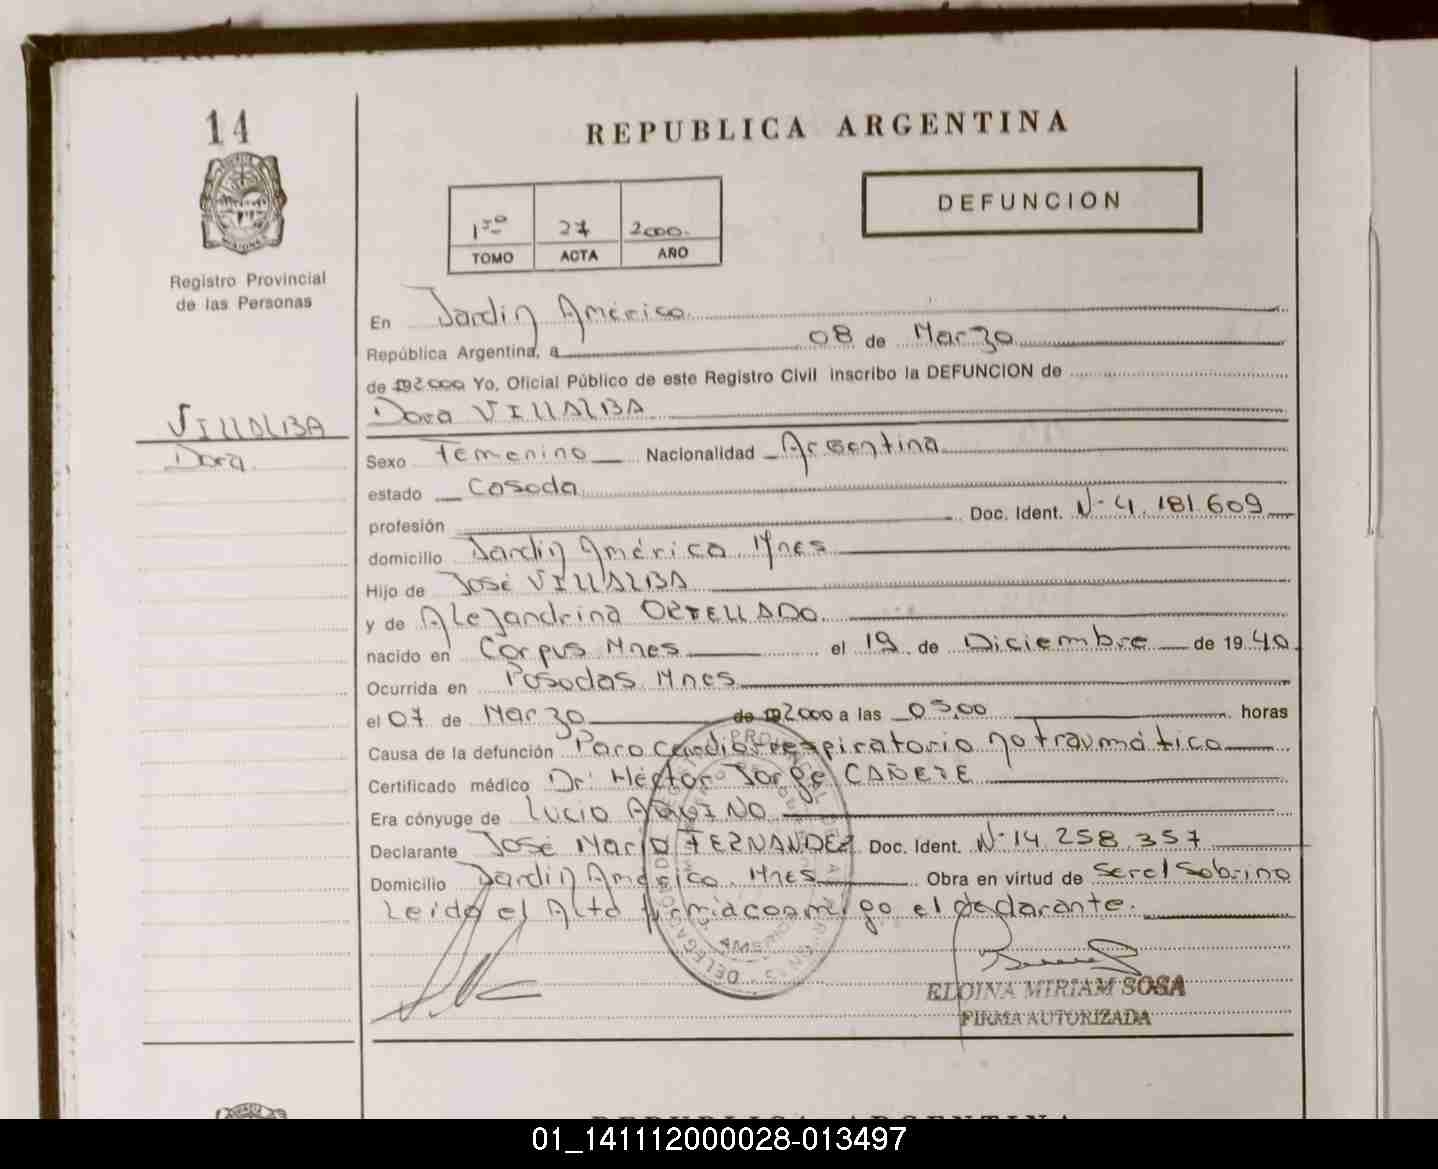 14
REPUBLICA ARGENTINA
DEFUNCION
1ro 27 2000.
TOMO ACTA AÑO
Registro Provincial
de las Personas
En Jardín América
República Argentina, a 08 de Marzo
de 2.000 Yo, Oficial Público de este Registro Civil inscribo la DEFUNCION de
Dora VILLALBA
VILLALBA
Dora
Sexo Femenino Nacionalidad Argentina
estado Casada
profesión Doc. Ident. Nº 4.181.609
domicilio Jardín América Mnes
Hijo de José VILLALBA
y de Alejandrina ORTELLADO
nacido en Corpus Mnes el 19 de Diciembre de 1940
Ocurrida en Posadas Mnes
el 07 de Marzo de 2000 a las 03,00 horas
Causa de la defunción Paro cardiorrespiratorio no traumático
Certificado médico Dr: Héctor Jorge CAÑETE
Era cónyuge de Lucio AQUINO
Declarante José Mario FERNANDEZ Doc. Ident. Nº 14.258.357
Domicilio Jardín América, Mnes Obra en virtud de ser el sobrino
Leída el Acta firma conmigo el declarante.
ELOINA MIRIAM SOSA
FIRMA AUTORIZADA
REPUBLICA ARGENTINA
01_141112000028-013497